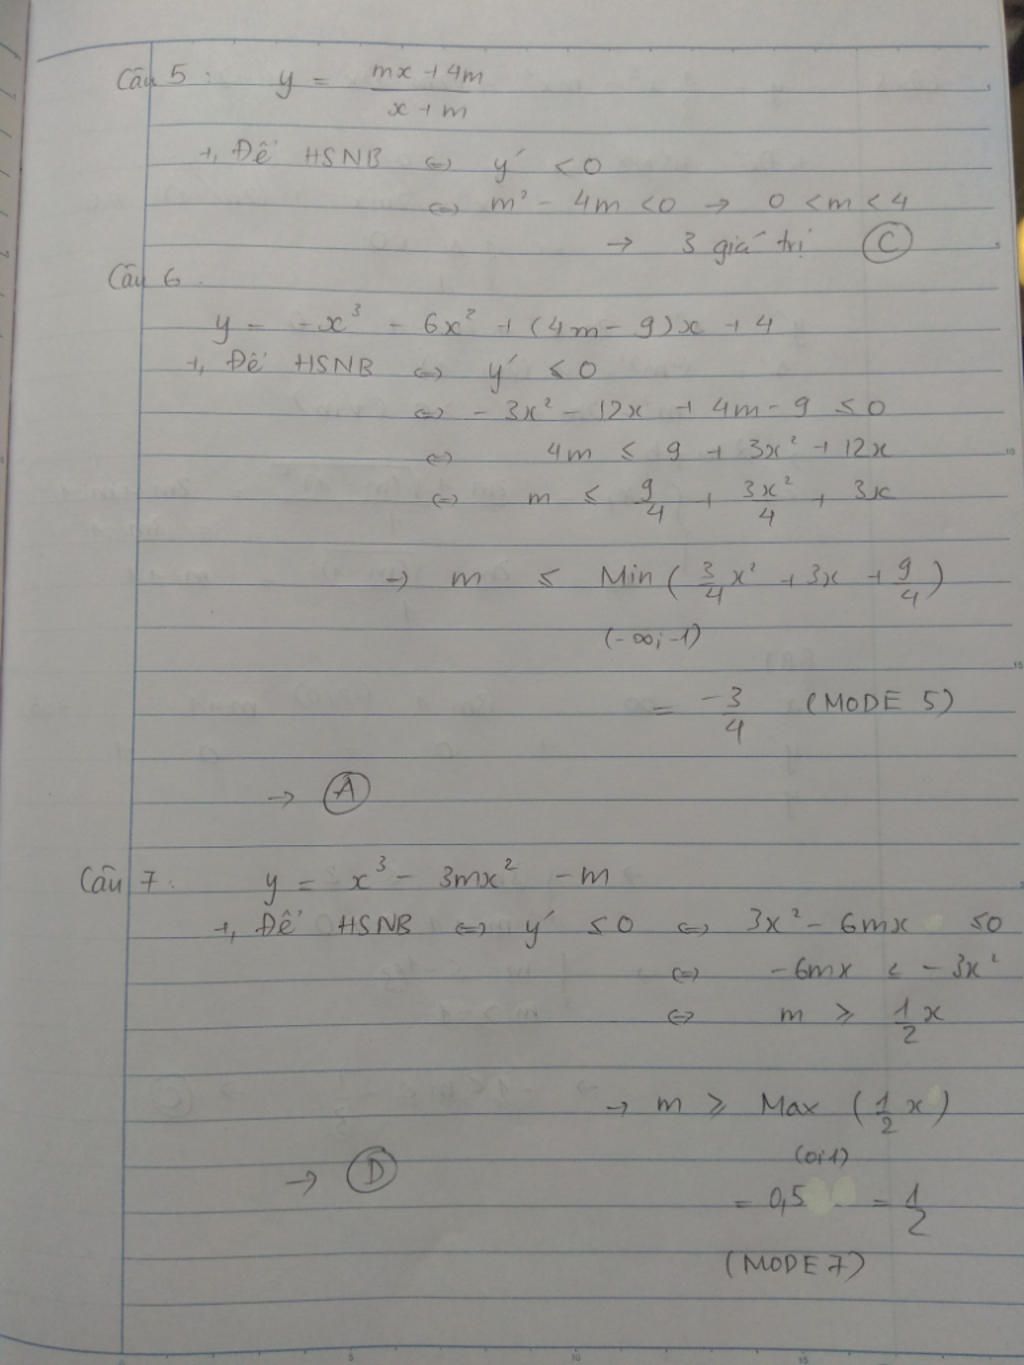 Câu 5: y = (mx + 4m)/(x + m)
+, Để HSNB ⇔ y' < 0
⇔ m² - 4m < 0 → 0 < m < 4
→ 3 giá trị Ⓒ
Câu 6.
y = -x³ - 6x² + (4m - 9)x + 4
+, Để HSNB ⇔ y' ≤ 0
⇔ -3x² - 12x + 4m - 9 ≤ 0
⇔ 4m ≤ 9 + 3x² + 12x
⇔ m ≤ 9/4 + 3x²/4 + 3x
→ m ≤ Min (3/4 x² + 3x + 9/4)
(-∞; -1)
= -3/4 (MODE 5)
→ Ⓐ
Câu 7: y = x³ - 3mx² - m
+, Để HSNB ⇔ y' ≤ 0 ⇔ 3x² - 6mx ≤ 0
⇔ -6mx ≤ -3x²
⇔ m ≥ 1/2 x
→ m ≥ Max (1/2 x)
(0;1)
→ Ⓓ
= 0,5 = 1/2
(MODE 7)